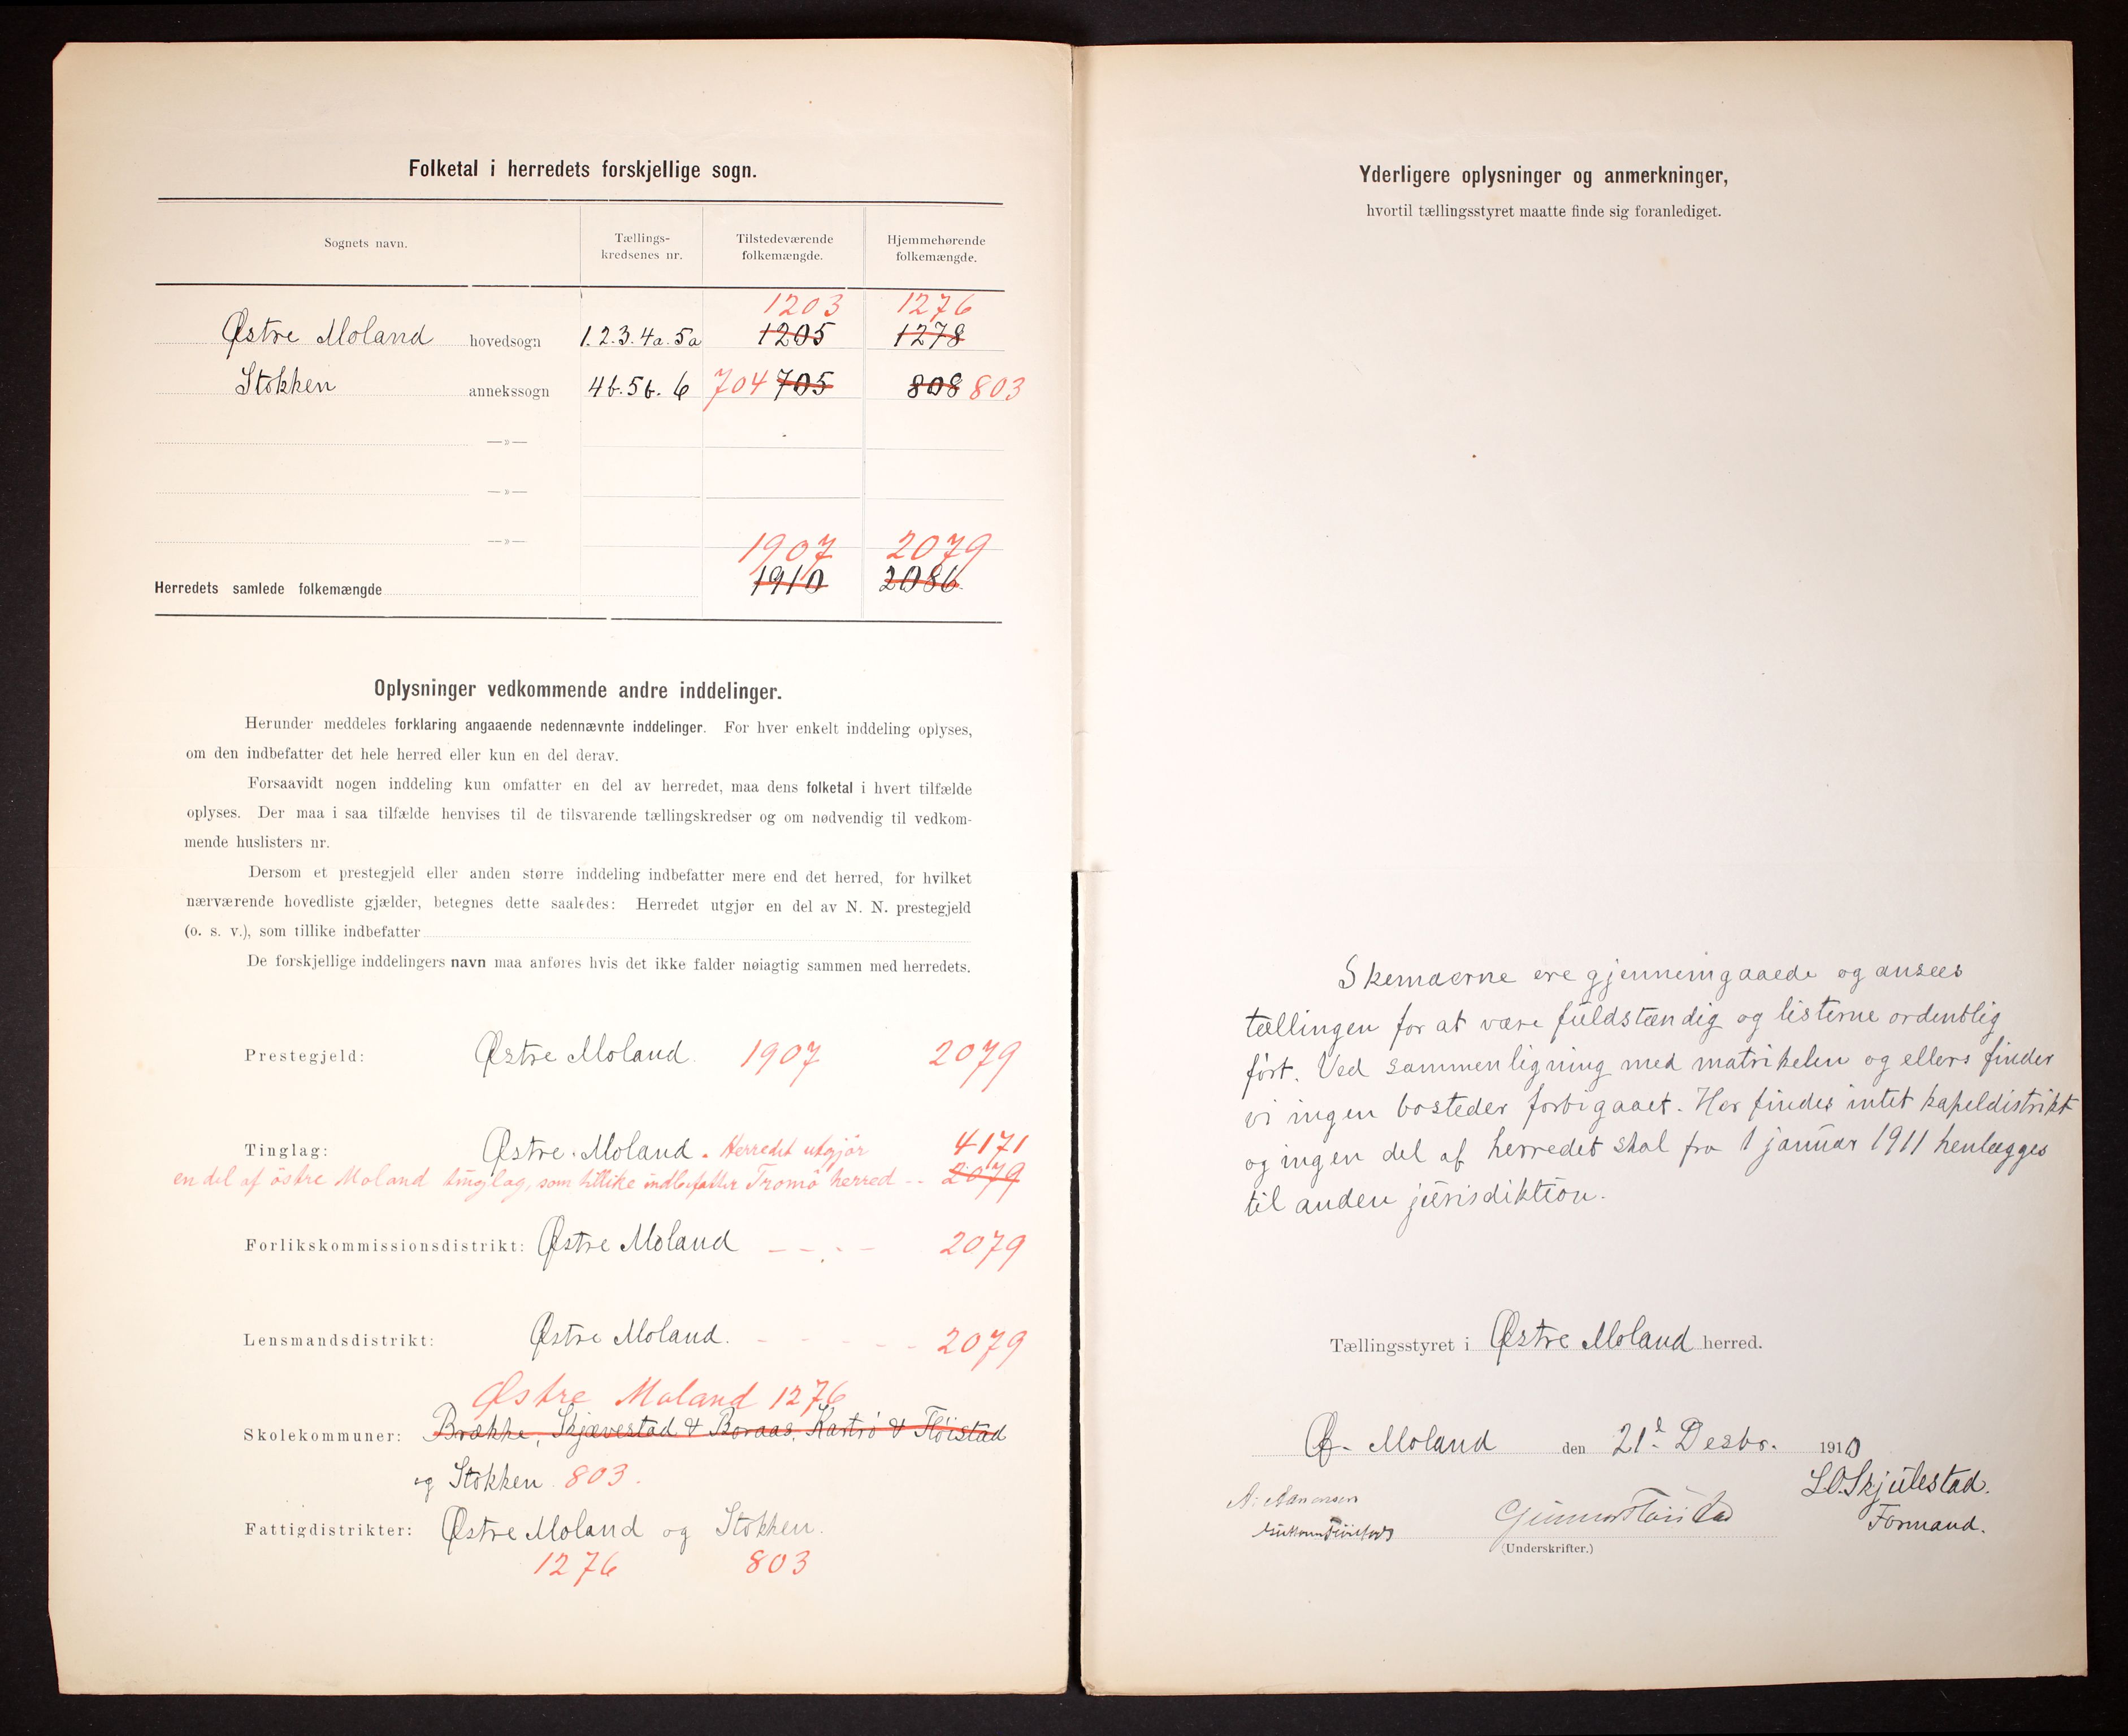 Folketal i herredets forskjellige sogn.
Sognets navn.
Tællings-
kredsenes nr.
Tilstedeværende
folkemængde.
Hjemmehørende
folkemængde.
1203 1276
Østre Moland hovedsogn 1.2.3.4a.5a 1205 1278
Stokken annekssogn 4b.5b.6 704 705 808 803
—»—
—»—
—»—
1907 2079
Herredets samlede folkemængde 1910 2086
Oplysninger vedkommende andre inddelinger.
Herunder meddeles forklaring angaaende nedennævnte inddelinger. For hver enkelt inddeling oplyses,
om den indbefatter det hele herred eller kun en del derav.
Forsaavidt nogen inddeling kun omfatter en del av herredet, maa dens folketal i hvert tilfælde
oplyses. Der maa i saa tilfælde henvises til de tilsvarende tællingskredser og om nødvendig til vedkom-
mende huslisters nr.
Dersom et prestegjeld eller anden større inddeling indbefatter mere end det herred, for hvilket
nærværende hovedliste gjælder, betegnes dette saaledes: Herredet utgjør en del av N. N. prestegjeld
(o. s. v.), som tillike indbefatter
De forskjellige inddelingers navn maa anføres hvis det ikke falder nøiagtig sammen med herredets.
Prestegjeld: Østre Moland. 1907 2079
Tinglag: Østre Moland. Herredet utgjör 4171
en del af östre Moland tinglag, som tillike indbefatter Tromö herred -- 2079
Forlikskommissionsdistrikt: Østre Moland - - - - 2079
Lensmandsdistrikt: Østre Moland. - - - - - 2079
Østre Moland 1276
Skolekommuner: Brække, Skjævestad & Boraas, Kaströ & Flöistad
og Stokken 803.
Fattigdistrikter: Østre Moland og Stokken.
1276 803
Yderligere oplysninger og anmerkninger,
hvortil tællingsstyret maatte finde sig foranlediget.
Skemaerne ere gjennemgaaede og ansees
tællingen for at være fuldstændig og listerne ordentlig
ført. Ved sammenligning med matrikelen og ellers finder
vi ingen bosteder forbigaaet. Her findes intet kapeldistrikt
og ingen del af herredet skal fra 1 januar 1911 henlægges
til anden jurisdiktion.
Tællingsstyret i Østre Moland herred.
Ø. Moland den 21d Desbr. 1910
S.O. Skjulestad.
Formand.
Gunnar Flöistad
(Underskrifter.)